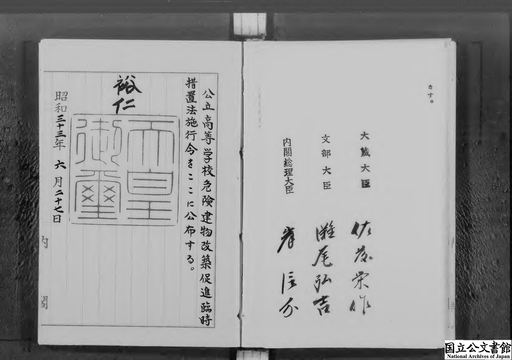 大蔵大臣 佐藤栄作
文部大臣 灘尾弘吉
内閣総理大臣 岸信介
公立高等学校危険建物改築促進臨時
措置法施行令をここに公布する。
裕仁
天皇
御璽
昭和三十三年 六月二十七日
国立公文書館
National Archives of Japan